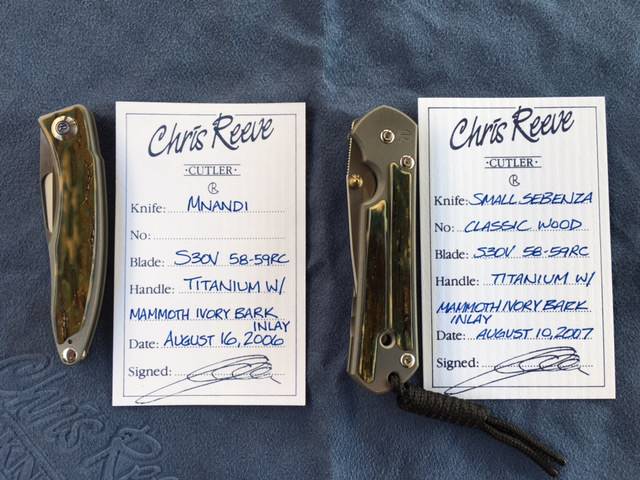 Chris Reeve
·CUTLER·
CR
Knife: MNANDI
No:
Blade: S30V 58-59RC
Handle: TITANIUM W/
MAMMOTH IVORY BARK
INLAY
Date: AUGUST 16, 2006
Signed:
Chris Reeve
·CUTLER·
CR
Knife: SMALL SEBENZA
No: CLASSIC WOOD
Blade: S30V 58-59RC
Handle: TITANIUM W/
MAMMOTH IVORY BARK
INLAY
Date: AUGUST 10, 2007
Signed:
Chris Reeve
KN